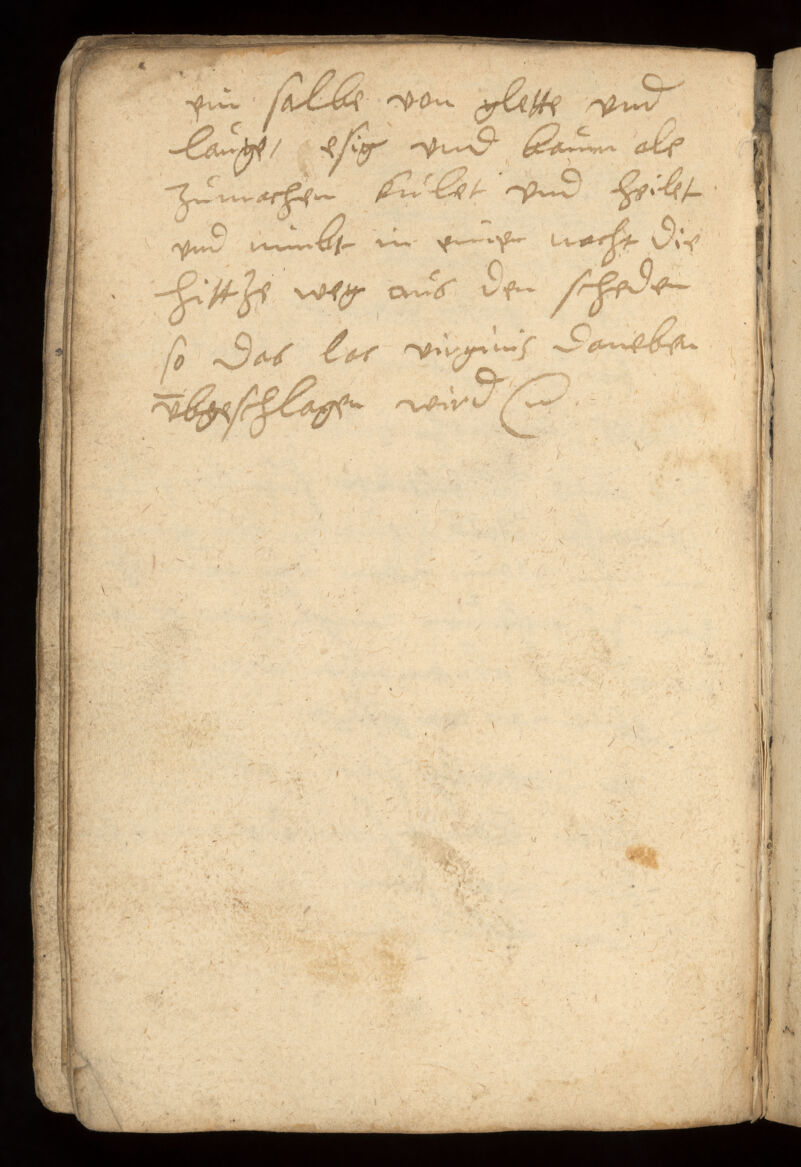 ein salbe von glette vnd
lauge, esig vnd baum ole
zumachen kulet vnd heilet
vnd nimbt in einer nacht die
hittze weg aus den scheden
so das lac virginis daneben
vbgeschlagen wird